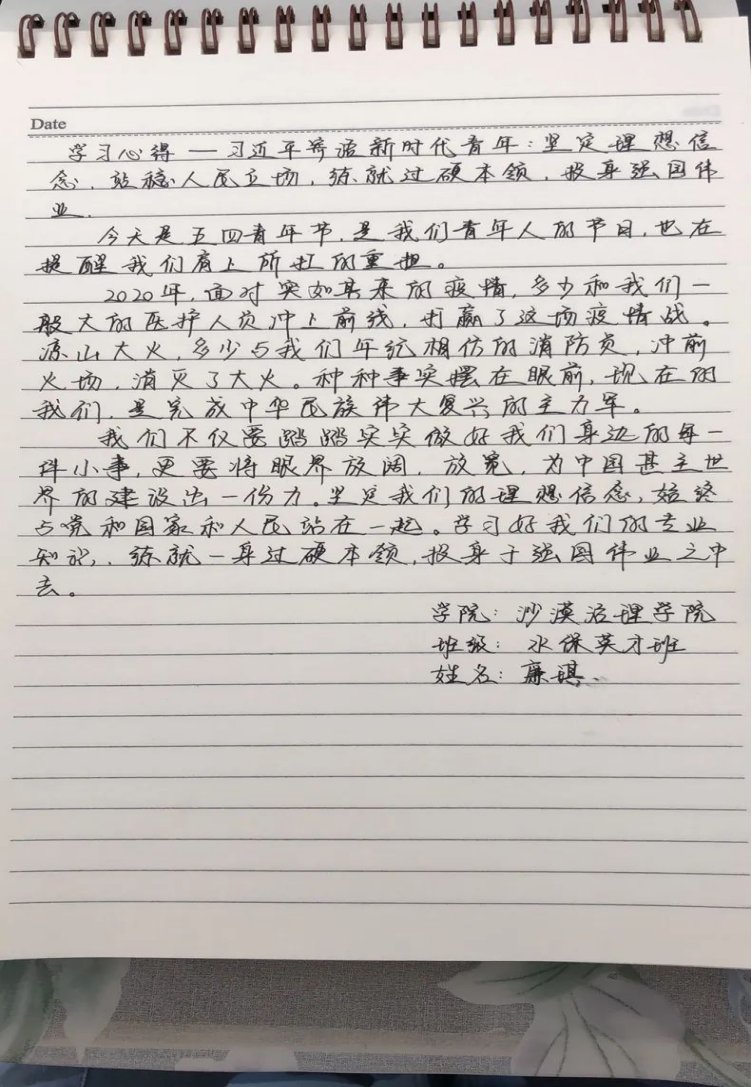 Date
学习心得 — 习近平寄语新时代青年：坚定理想信
念，站稳人民立场，练就过硬本领，投身强国伟
业.
今天是五四青年节，是我们青年人的节日，也在
提醒我们肩上所扛的重担。
2020年，面对突如其来的疫情，多少和我们一
般大的医护人员冲上前线，打赢了这场疫情战。
凉山大火，多少与我们年纪相仿的消防员，冲前
火场，消灭了大火。种种事实摆在眼前，现在的
我们，是完成中华民族伟大复兴的主力军。
我们不仅要踏踏实实做好我们身边的每一
件小事，更要将眼界放阔，放宽，为中国甚至世
界的建设出一份力。坚定我们的理想信念，始终
与党和国家和人民站在一起。学习好我们的专业
知识，练就一身过硬本领，投身于强国伟业之中
去。
学院：沙漠治理学院
班级：水保英才班
姓名：康琪.